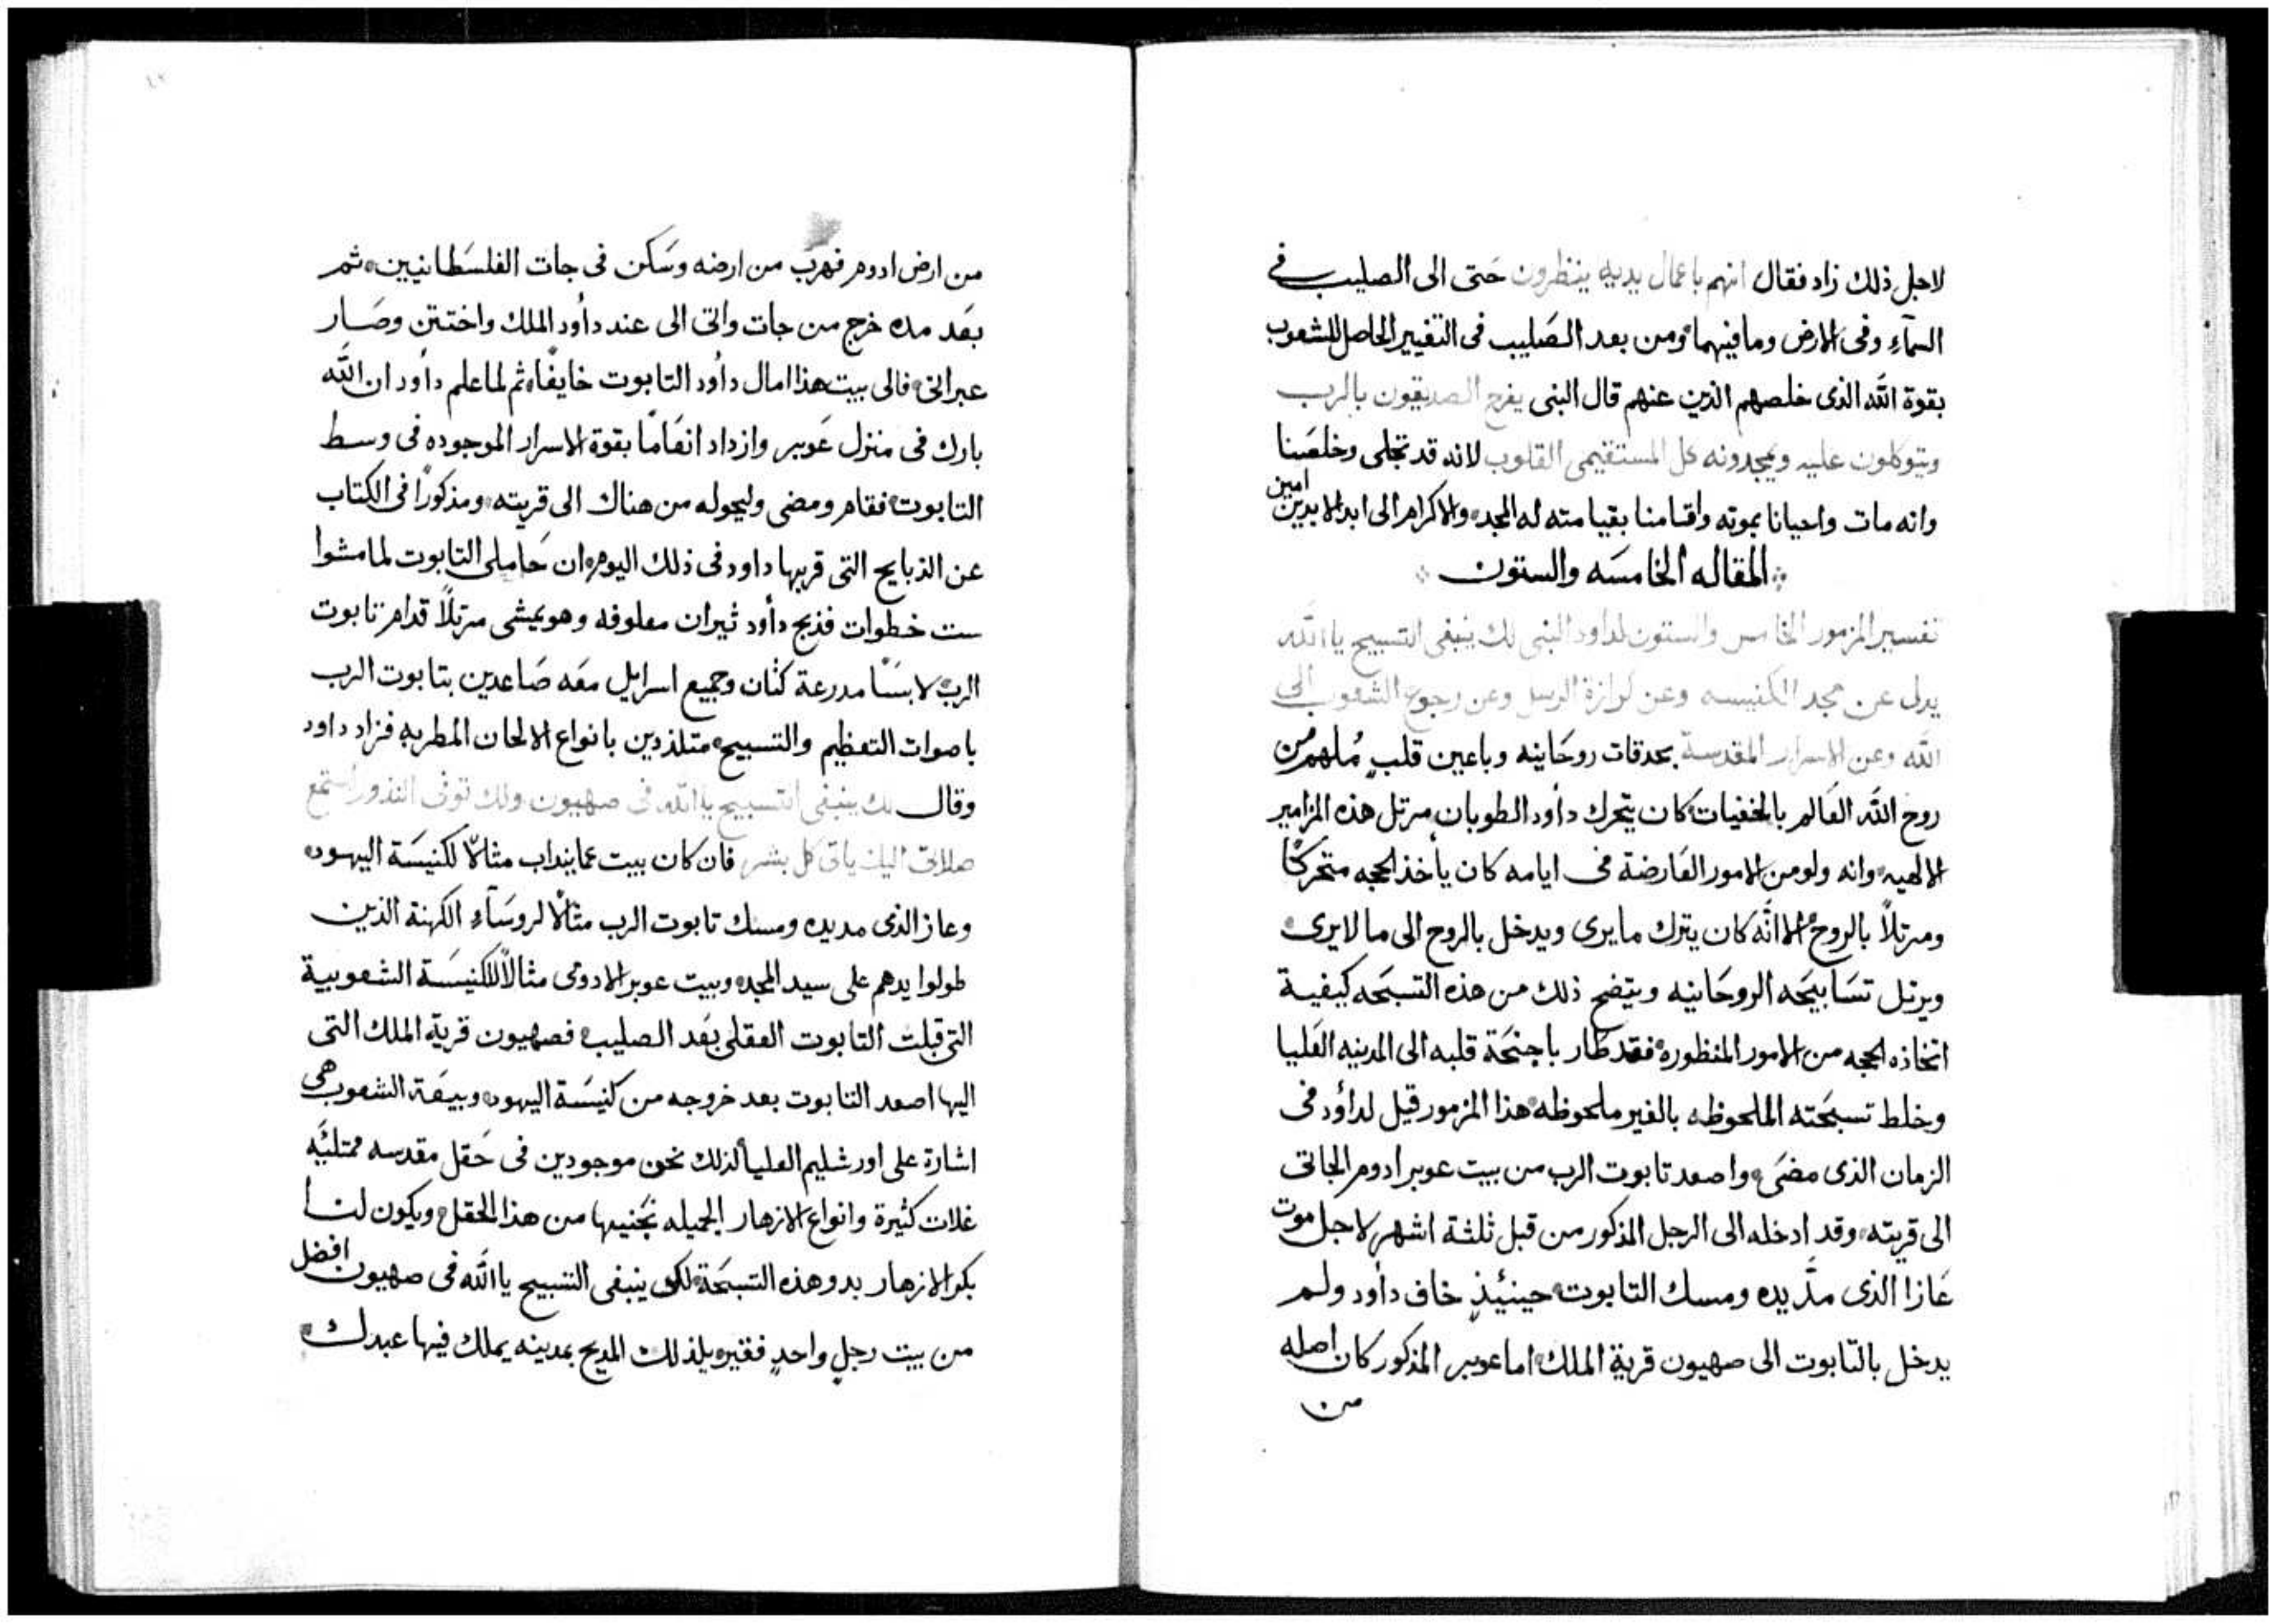 لاجل ذلك زاد فقال انهم باعمال يديه ينظرون حَتى الى الصليب في
السمآءِ وفى الارض وما فيهما ومن بعد الصَليب فى التغيير الحاصل للشعوب
بقوة الله الذى خلصهم الذين عنهم قال النبى يفرح الصديقون بالرب
ويتوكلون عليه ويمجدونه كل المستقيمى القلوب لانه قد تجلى وخلصَنا
وانه مات واحيانا بموته واقامنا بقيامته له المجد والاكرام الى ابد الابدين امين
المقاله الخامسَه والستون
تفسير المزمور الخامس والستون لداود النبى لك ينبغى التسبيح يا الله
يدل عن مجد الكنيسه وعن كرازة الرسل وعن رجوع الشعوب الى
الله وعن الاسرار المقدسة بحدقات روحَانيه وباعين قلبٍ مُلهم من
روح الله العَالم بالخفيات كان يتحرك داُود الطوبان مرتل هذه المزامير
الالهيه وانه ولو من الامور العَارضة فى ايامه كان يأخذ الحجه متحركًا
ومرتلاً بالروح الا انَّه كان يترك ما يرى ويدخل بالروح الى ما لا يرى
ويرتل تسَابيحَه الروحَانيه ويتضح ذلك من هذه التسبحَه كيفية
اتخاذه الحجه من الامور المنظوره فقد طار باجنحَة قلبه الى المدينه العَليا
وخلط تسبحَته الملحوظه بالغير ملحوظه هذا المزمور قيل لداؤد فى
الزمان الذى مضَى واصعد تابوت الرب من بيت عوبر ادوم الجاتى
الى قريته وقد ادخله الى الرجل المذكور من قبل ثلثة اشهر لاجل موت
عَازا الذى مدَّ يده ومسك التابوت حينئيذٍ خاف داُود ولم
يدخل بالتابوت الى صهيون قرية الملك اما عوبر المذكور كان اصله
من
من ارض ادوم فهرَب من ارضه وسَكن فى جات الفلسَطانيين ثم
بعَد مده خرج من جات واتى الى عند داُود الملك واختتن وصَار
عبرانى فالى بيت هذا امال داُود التابوت خايفًا ثم لما علم داُود ان الله
بارك فى منزل عَوبر وازداد انعَامًا بقوة الاسرار الموجوده فى وسط
التابوت فقام ومضى وليحوله من هناك الى قريته ومذكورًا فى الكتاب
عن الذبايح التى قربها داود فى ذلك اليوم ان حَاملى التابوت لما مشوا
ست خطوات فذبح داُود ثيران معلوفه وهو يمشى مرتلاً قدام تابوت
الرب لابسًَا مدرعة كتان وجميع اسرايل معَه صَاعدين بتابوت الرب
باصوات التعظيم والتسبيح متلذدين بانواع الالحان المطربه فزاد داود
وقال لك ينبغى التسبيح يا الله فى صهيون ولك توفى النذور استمع
صلاتى اليك ياتى كل بشر فان كان بيت عمابينداب مثالاً لكنيسَة اليهود
وعاز الذى مد يده ومسك تابوت الرب مثالاً لروسَآءِ الكهنة الذين
طولوا يدهم على سيد المجد وبيت عوبر الادومى مثالاً للكنيسَة الشعوبية
التى قبلت التابوت العقلى بعَد الصليب فصهيون قرية الملك التى
اليها اصعد التابوت بعد خروجه من كنيسَة اليهود وبيعَة الشعوب هى
اشارة على اورشليم العليا لذلك نحن موجودين فى حَقل مقدسه ممتليَه
غلات كثيرة وانواع الازهار الجميله نجَنيها من هذا الحقل ويكون لنا
بكو الازهار بدو هذه التسبحَة لك ينبغى التسبيح يا الله فى صهيون افضل
من بيت رجلٍ واحدٍ فقير ويلذ لك المديح بمدينه يملك فيها عبدك